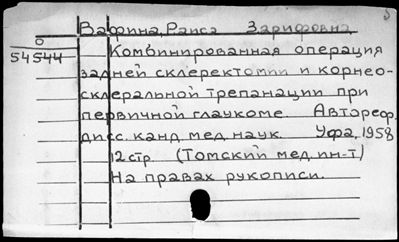 Вафина, Раиса Зарифовна
О
54544
Комбинированная операция
задней склерэктомии и корнео-
склеральной трепанации при
первичной глаукоме. Автореф.
дисс. канд. мед. наук. Уфа, 1958
12 стр. (Томский мед. ин-т)
На правах рукописи.